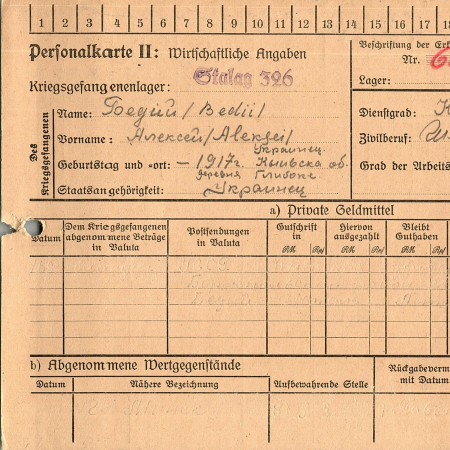 1 2 3 4 5 6 7 8 9 10 11 12 13 14 15 16 17 18
Personalkarte II: Wirtschaftliche Angaben
Beschriftung der Er
Nr. 6
Kriegsgefangenenlager: Stalag 326
Lager:
Des Kriegsgefangenen
Name: Бедий /Bedii/
Dienstgrad:
Vorname: Алексей /Aleksei/
Zivilberuf:
Украинец
Geburtstag und -ort: – 1917г. Кыивска об
Grad der Arbeits
деревня Глибоке
Staatsangehörigkeit: Украинец
a) Private Geldmittel
Datum
Dem Kriegsgefangenen abgenommene Beträge in Valuta
Postsendungen in Valuta
Gutschrift in RM Rpf
Hiervon ausgezahlt RM Rpf
Bleibt Guthaben RM Rpf
b) Abgenommene Wertgegenstände
Rückgabeverm
mit Datum
Datum
Nähere Bezeichnung
Aufbewahrende Stelle